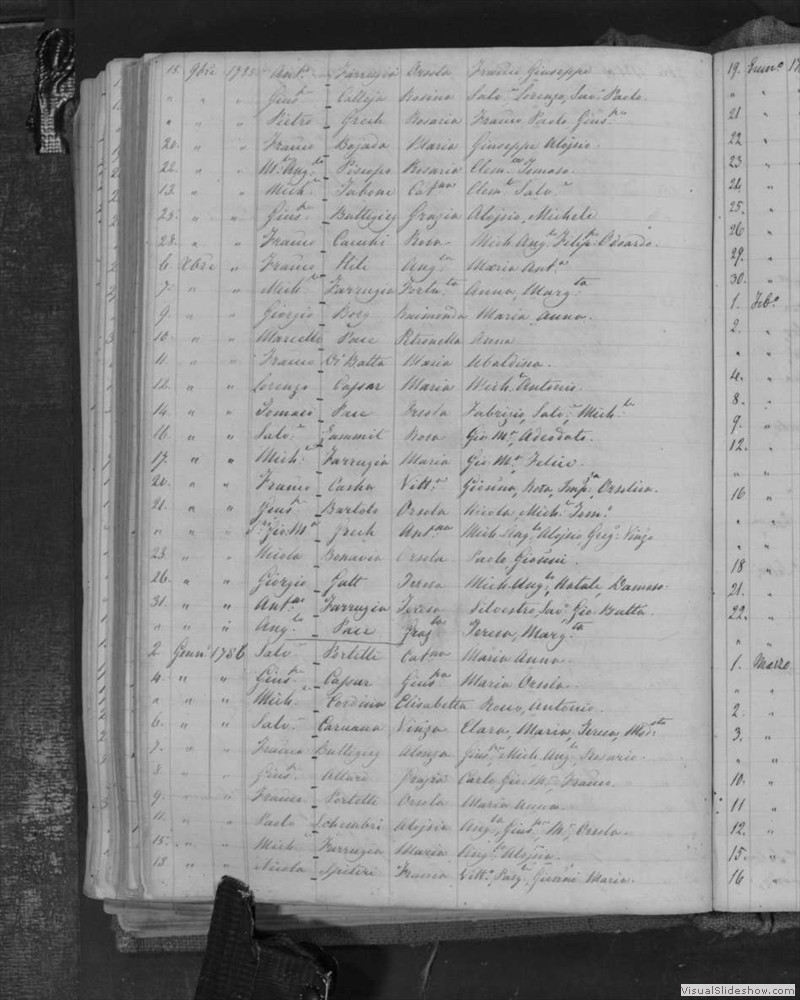 15. 9bre 1785 Ant.o Farrugia Orsola Franco Giuseppe
" " " Gius.e Calleja Rosina Salv.e Lorenzo, Sav.o Paolo.
" " " Pietro Grech Rosaria Franco Paolo Gius.e
20. " " Franco Bajada Maria Giuseppe Aloisio.
22. " " M.l Ang.lo Piscopo Rosaria Clem.te Tomaso.
13. " " Mich.e Tabone Cat.na Clem.te Salv.e
23. " " Gius.e Buttigieg Grazia Aloisio, Michele
28. " " Franco Caruhi Rosa Mich. Ang.lo Filip.o Odoardo.
6. Xbre " Franco Hili Ang.la Maria Ant.a
7. " " Mich.e Farrugia Fortu.ta Anna, Marg.ta
9. " " Giorgio Borg Raimonda Maria, Anna.
10. " " Marcello Pace Petronella Anna
11. " " Franco Di Batta Maria Ubaldina.
12. " " Lorenzo Capsar Maria Mich.e Antonio.
14. " " Tomaso Pace Orsola Fabrizio, Salv.e Mich.e
16. " " Salv.e Zammit Rosa Gio M.a Adeodato.
17. " " Mich.e Farrugia Maria Gio. M.a Felice.
20. " " Franco Casha Vitt.a Giovña, Rosa, Orsolica.
21. " " Gius.e Bartolo Orsola Nicola, Mich.e Tom.o
" " " Gio M.a Grech Ant.na Mich. Ang.lo Aloisio Greg.o Vinzo
23. " " Nicola Bonavia Orsola Paolo, Giovñi.
26. " " Giorgio Gatt Teresa Mich. Ang.lo, Natale, Damaso.
31. " " Ant.no Farrugia Teresa Silvestro, Sav.o Gio Batta.
" " " Ang.lo Pace Graz.la Teresa, Marg.ta
2. Genn.o 1786 Salv.e Portelli Cat.na Maria Anna.
4. " " Gius.e Capsar Gius.pa Maria Orsola.
" " " Mich.e Cordina Elisabetta Rosa, Antonio.
6. " " Salv.e Caruana Vinza Clara, Maria, Teresa, Mod.sta
7. " " Franco Buttigieg Alonza Gius.e Mich. Ang.lo Rosario.
8. " " Gius.e Attard Grazia Carlo Gio M.a Franco.
9. " " Franco Portelli Orsola Maria Anna.
11. " " Paolo Schembri Aloisia Ang.la, Gius.pa M.a, Orsola.
15. " " Mich.e Farrugia Maria Ang.lo Aloisia.
18 " " Nicola Spiteri Franca Vitt.o, Pasq.e Giovñi Maria.
19. Genn.o 17
" "
21 "
22 "
23 "
24 "
25. "
26 "
29. "
30. "
1. Feb.o
2. "
" "
4. "
8. "
9. "
12. "
" "
16 "
" "
" "
18 "
21. "
22. "
" "
1. Marzo
" "
2. "
3. "
" "
10. "
11 "
12. "
15. "
16 "
VisualSlideshow.com